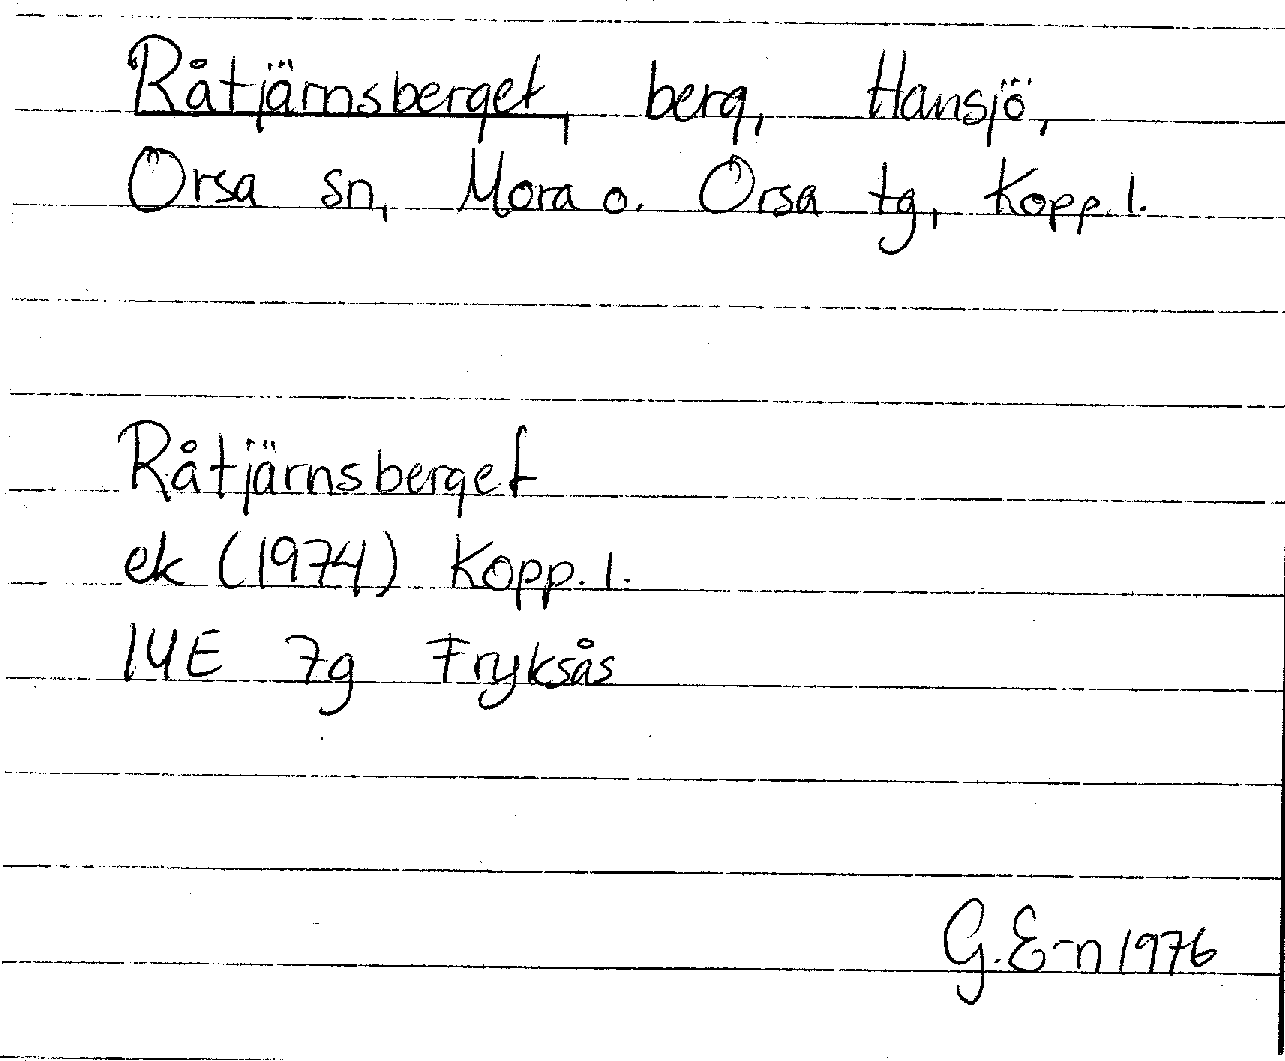 Råtjärnsberget, berg, Hansjö,
Orsa sn, Mora o. Orsa tg, Kopp. l.
Råtjärnsberget
ek (1974) Kopp. l.
14E 7g Fryksås
G.E-n 1976